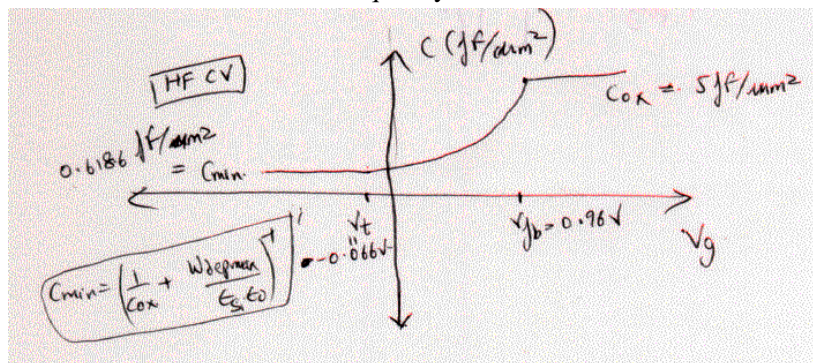 C (fF/μm²)
HF CV
Cox = 5 fF/μm²
0.6186 fF/μm²
= Cmin
Vt
"
-0.066V
Vfb = 0.96 V
Vg
Cmin = (1/Cox + Wdepmax/εsi ε0)⁻¹